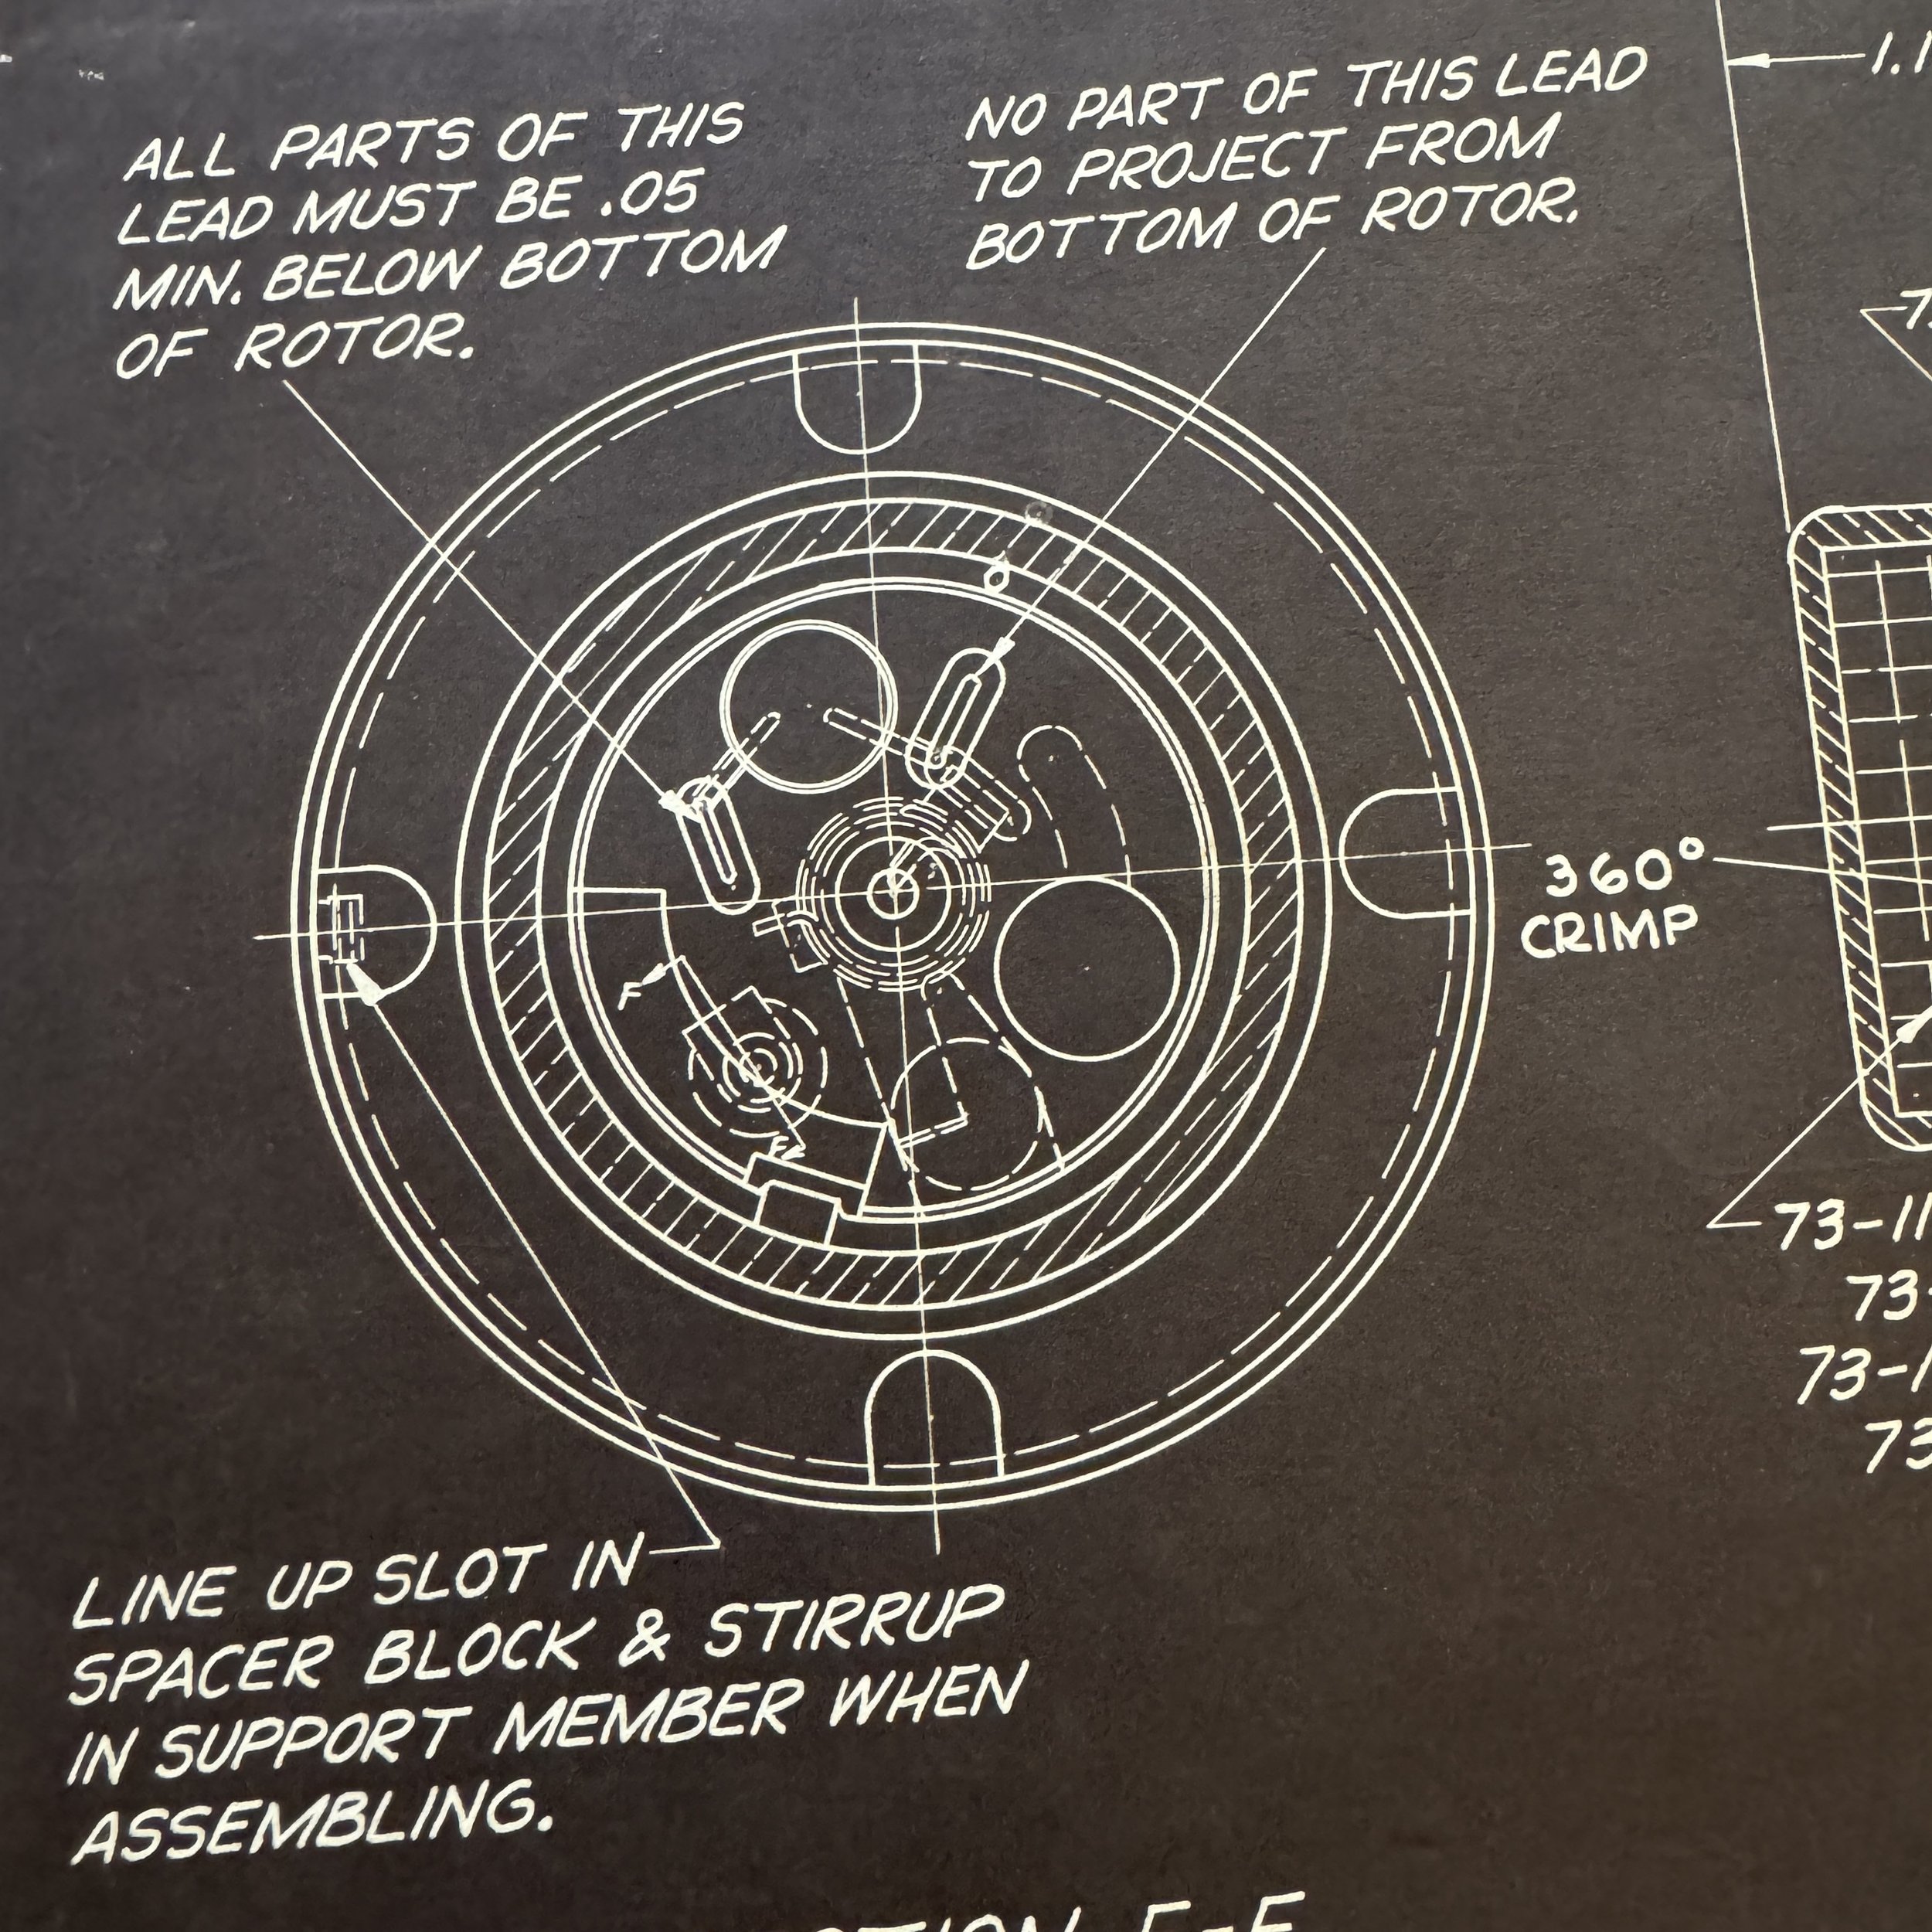 ALL PARTS OF THIS
LEAD MUST BE .05
MIN. BELOW BOTTOM
OF ROTOR.
NO PART OF THIS LEAD
TO PROJECT FROM
BOTTOM OF ROTOR.
1.1
7
360°
CRIMP
F
F
73-11
73-
73-1
73
LINE UP SLOT IN
SPACER BLOCK & STIRRUP
IN SUPPORT MEMBER WHEN
ASSEMBLING.